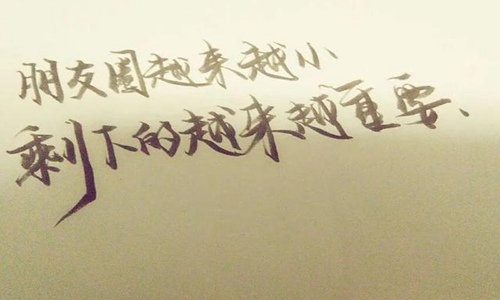 朋友圈越来越小
剩下的越来越重要、